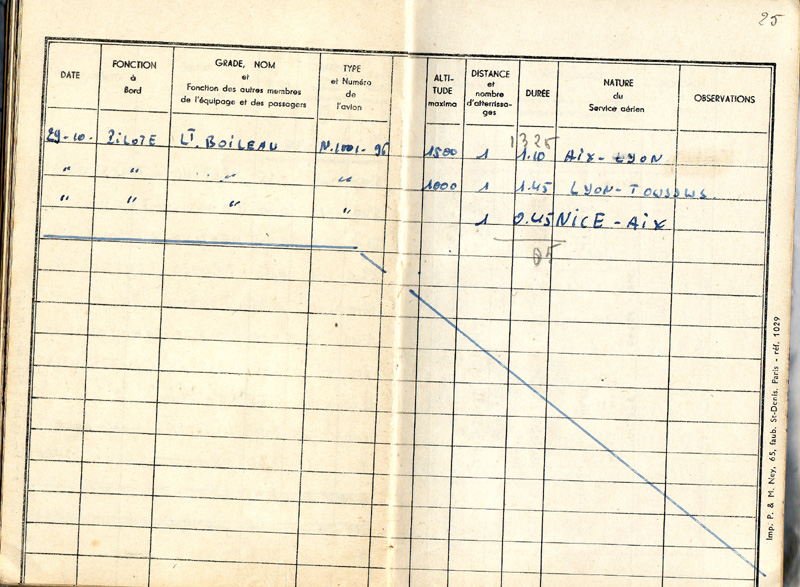 25
DATE
FONCTION
à
Bord
GRADE, NOM
et
Fonction des autres membres
de l'équipage et des passagers
TYPE
et Numéro
de
l'avion
ALTI-
TUDE
maxima
DISTANCE
et
nombre
d'atterrissa-
ges
DURÉE
NATURE
du
Service aérien
OBSERVATIONS
1325
29-10. PILOTE LT. BOILEAU N.1001-96 1500 1 1.10 AIX-LYON
" " " " 1000 1 1.45 LYON-TOUSSUS.
" " " " 1 0.45 NICE-AIX
05
Imp. P. & M. Ney, 65, faub. St-Denis. Paris - réf. 1029